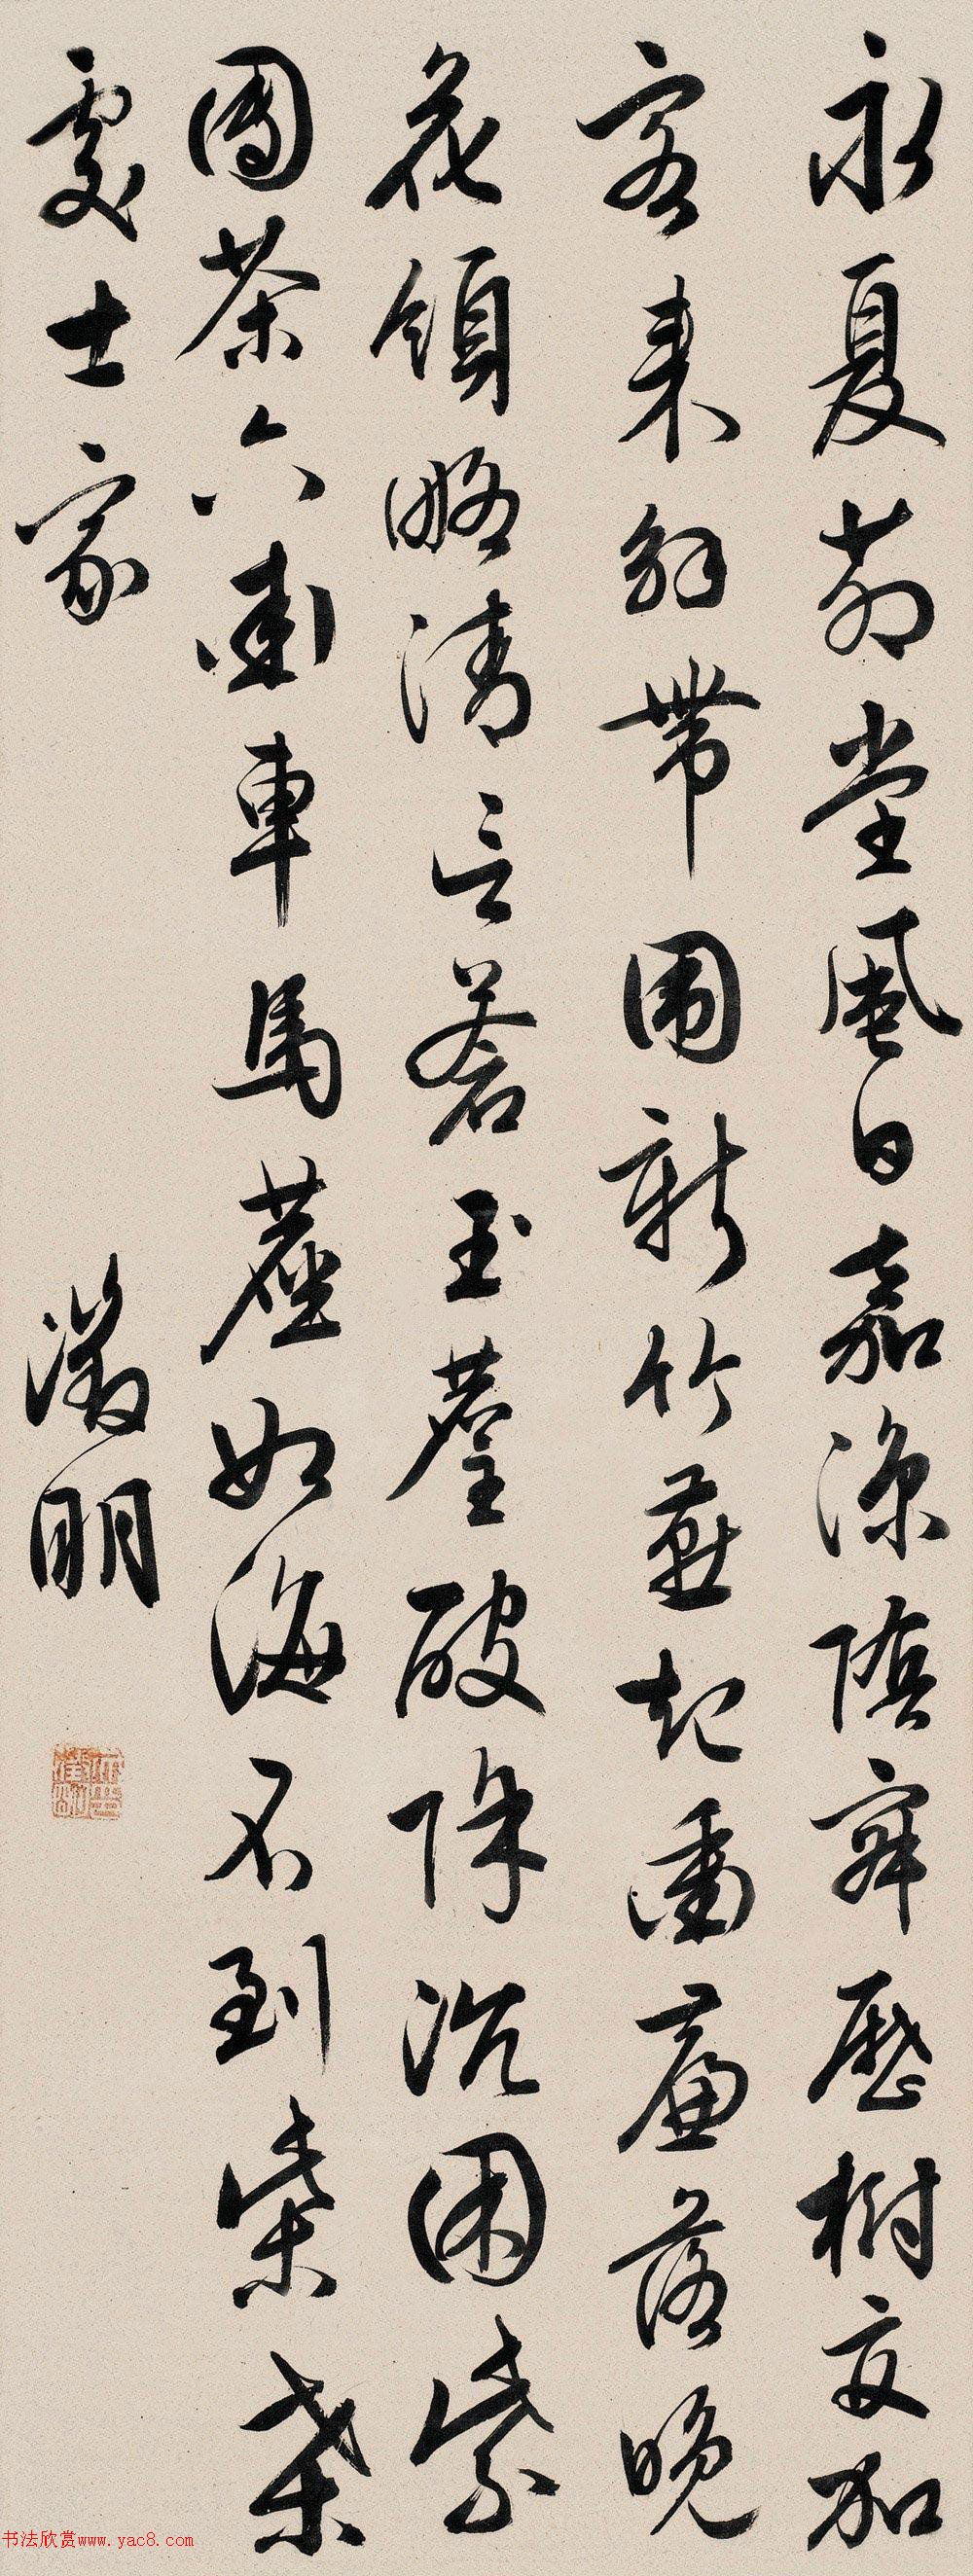 永夏茆堂風日嘉涼陰寂歷樹交加
客來解帶圍新竹燕起簾落晚
花領略清言蒼玉麈破除沉困紫
團茶六街車馬塵如海不到柴桑
處士家
徵明
书法欣赏www.yac8.com